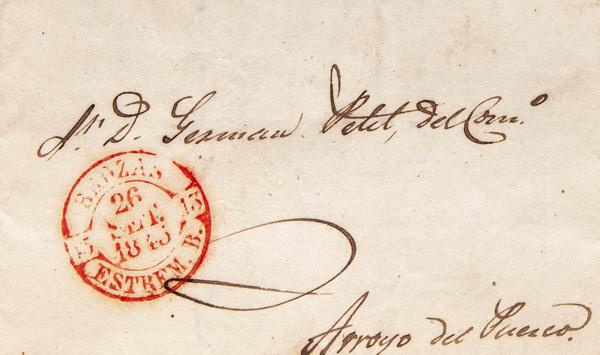 Sr. D. German Petit, del Com.º
BADZAS
26
SET.
1845
15
15
ESTREM. B.
Arroyo del Puerco.